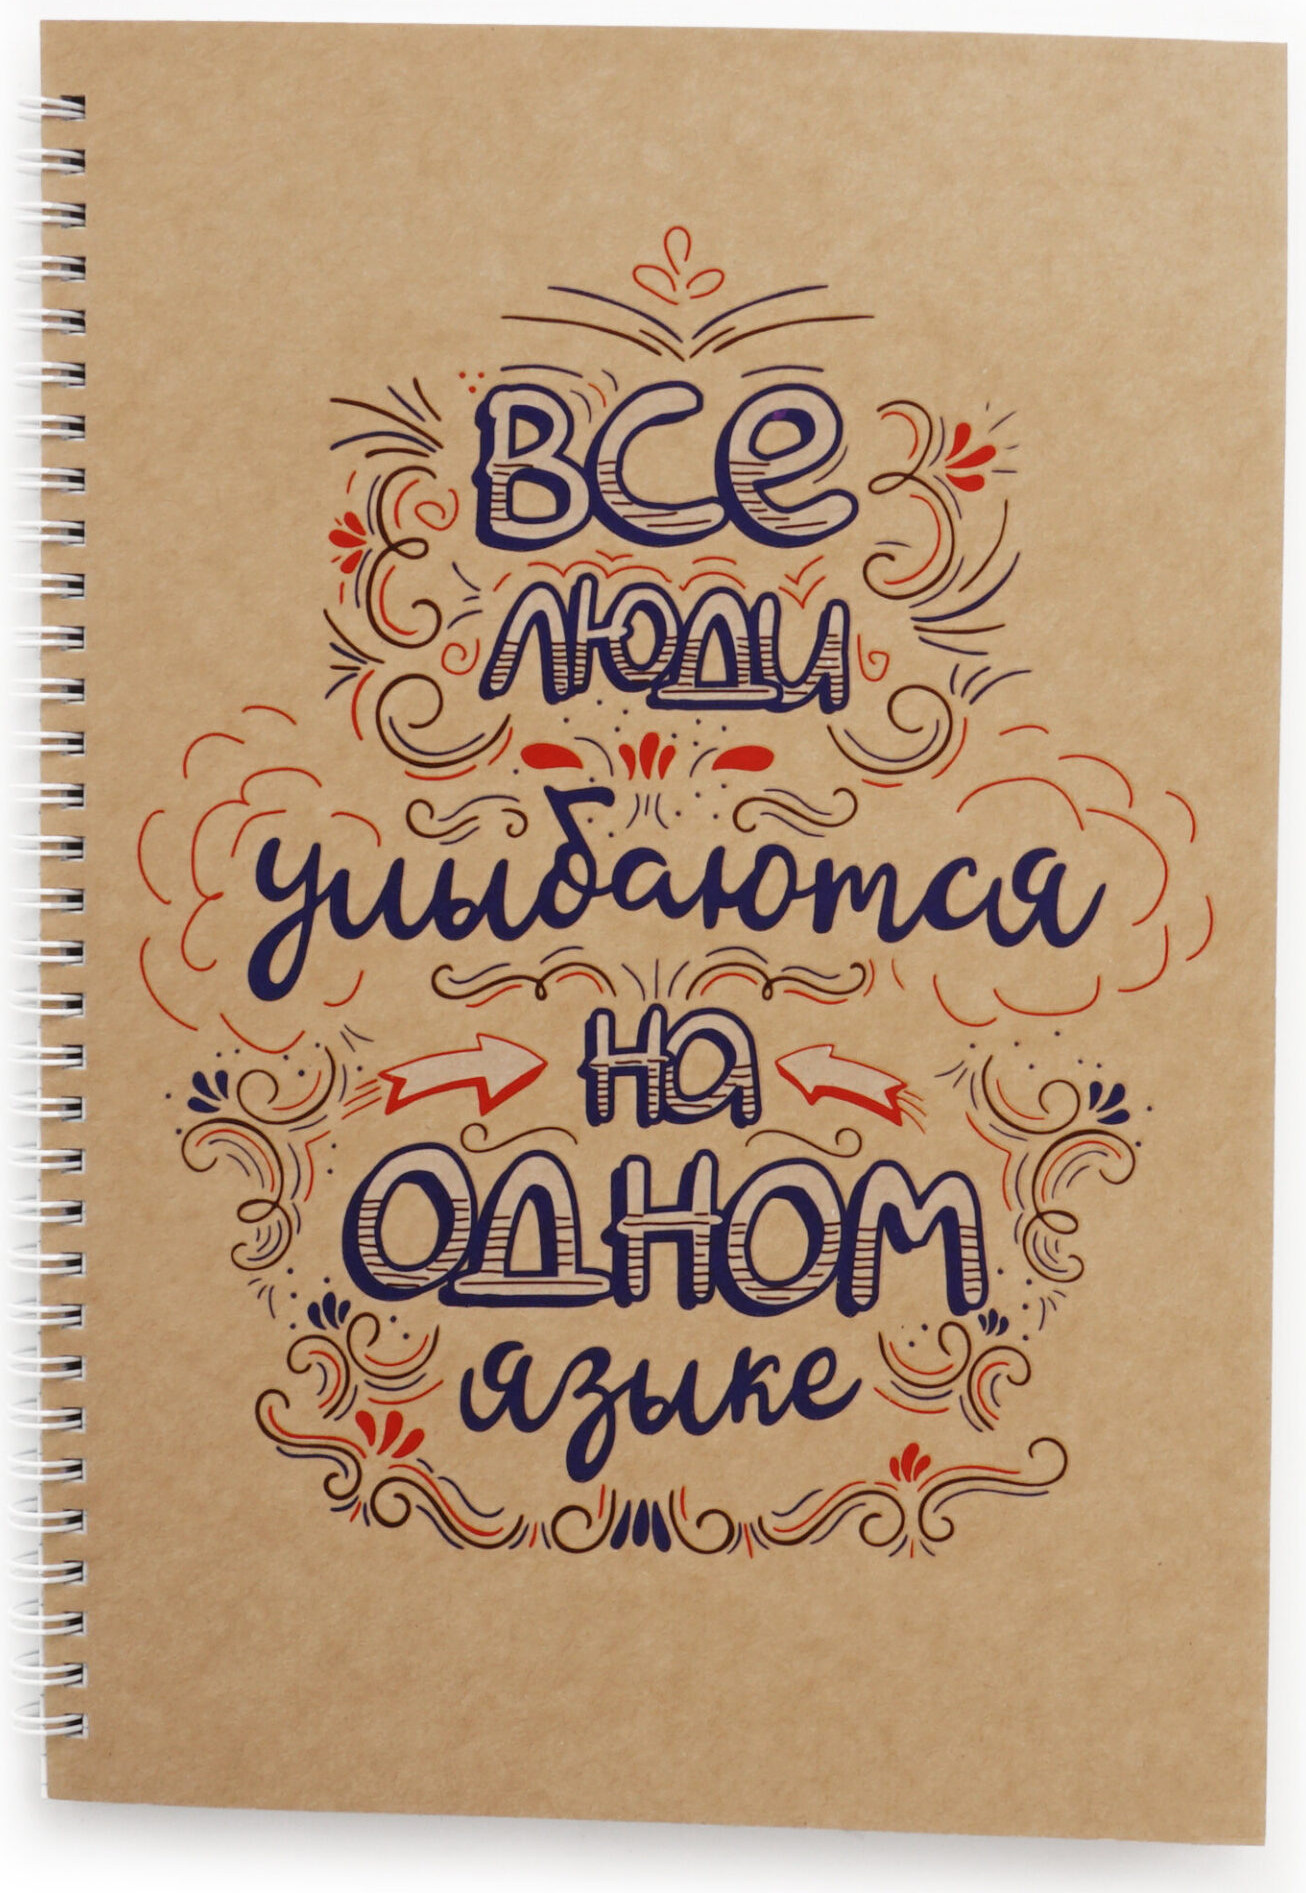 ВСЕ
ЛЮДИ
улыбаются
НА
ОДНОМ
языке